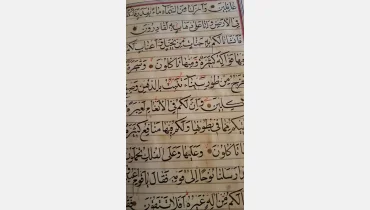 غافلين وأنزلنا من السماء ماء بقدر
في الأرض وإنا على ذهاب به لقادرون
فأنشأنا لكم به جنات من نخيل وأعناب لكم
فيها فواكه كثيرة ومنها تأكلون وشجرة
تخرج من طور سيناء تنبت بالدهن وصبغ
للآكلين وإن لكم في الأنعام لعبرة
مما في بطونها ولكم فيها منافع كثيرة
ومنها تأكلون وعليها وعلى الفلك تحملون
ولقد أرسلنا نوحا إلى قومه فقال يا قوم
ما لكم من إله غيره أفلا تتقون